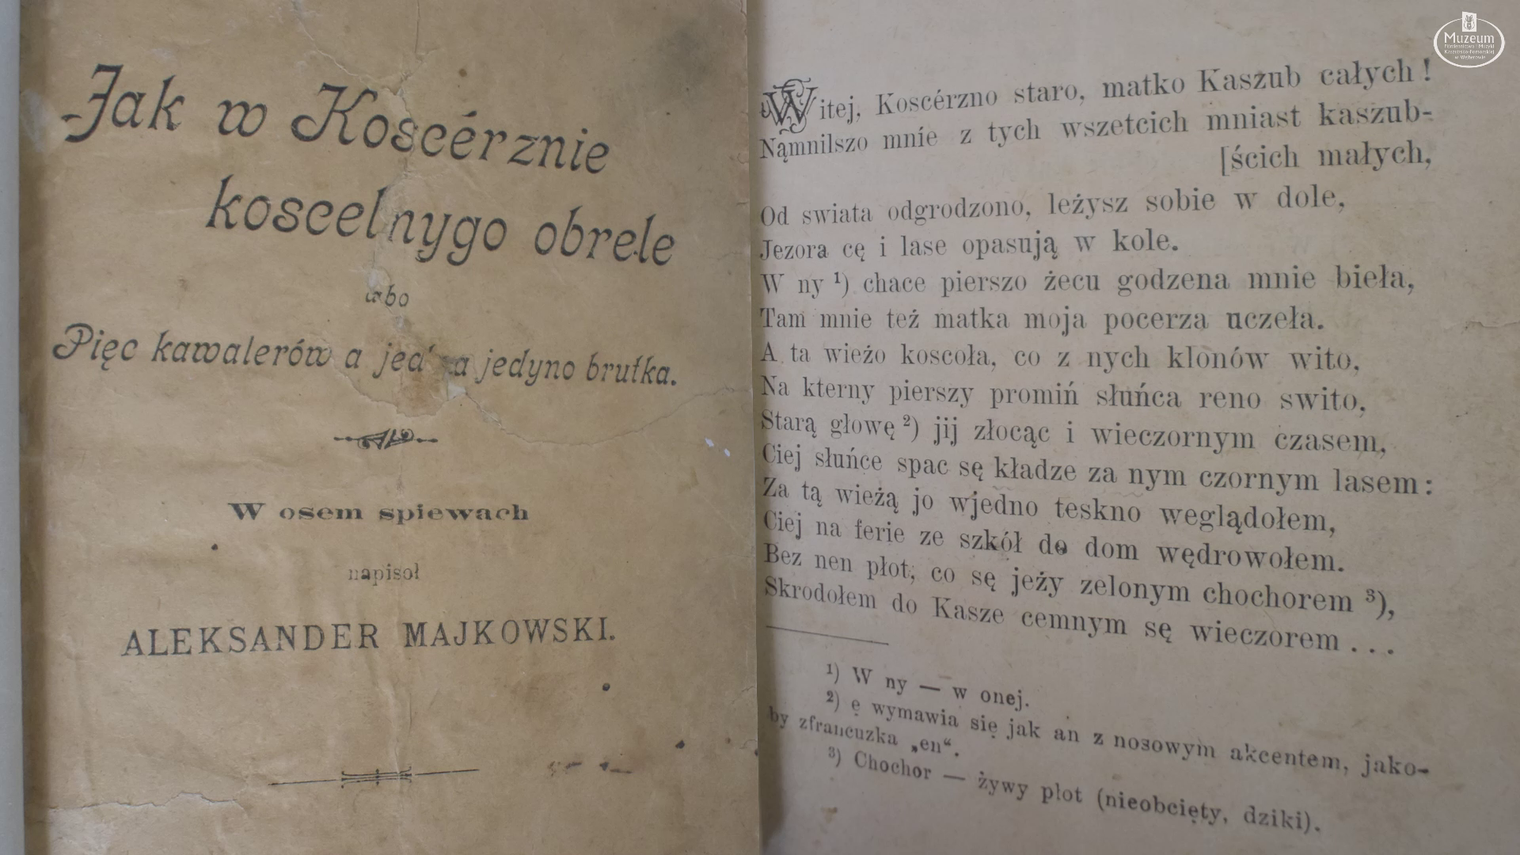 Jak w Koscérznie
koscelnygo obrele
abo
Pięc kawalerów a jedna jedyno brutka.
W osem spiewach
napisoł
ALEKSANDER MAJKOWSKI.
Witej, Koscérzno staro, matko Kaszub całych!
Nąmnilszo mnie z tych wszetcich mniast kaszub-
[ścich małych,
Od swiata odgrodzono, leżysz sobie w dole,
Jezora cę i lase opasują w kole.
W ny ¹) chace pierszo żecu godzena mnie bieła,
Tam mnie też matka moja pocerza uczeła.
A ta wieżo koscoła, co z nych klonów wito,
Na kterny pierszy promiń słuńca reno swito,
Starą głowę ²) jij złocąc i wieczornym czasem,
Ciej słuńce spac sę kładze za nym czornym lasem:
Za tą wieżą jo wjedno teskno weglądołem,
Ciej na ferie ze szkół do dom wędrowołem.
Bez nen płot, co sę jeży zelonym chochorem ³),
Skrodołem do Kasze cemnym sę wieczorem ...
¹) W ny — w onej.
²) ę wymawia się jak an z nosowym akcentem, jako-
by zfrancuzka „en“.
³) Chochor — żywy płot (nieobcięty, dziki).
Muzeum